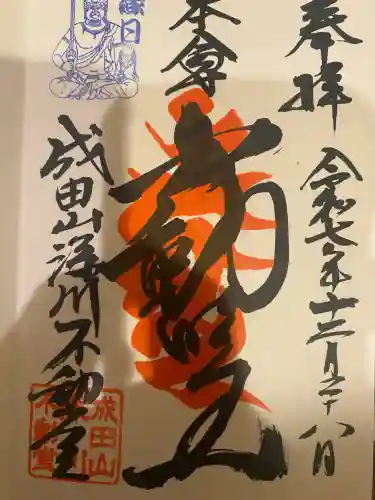 奉拝
令和七年十二月二十八日
本尊
不動明王
成田山深川不動堂
縁日
成田山
深川
不動堂